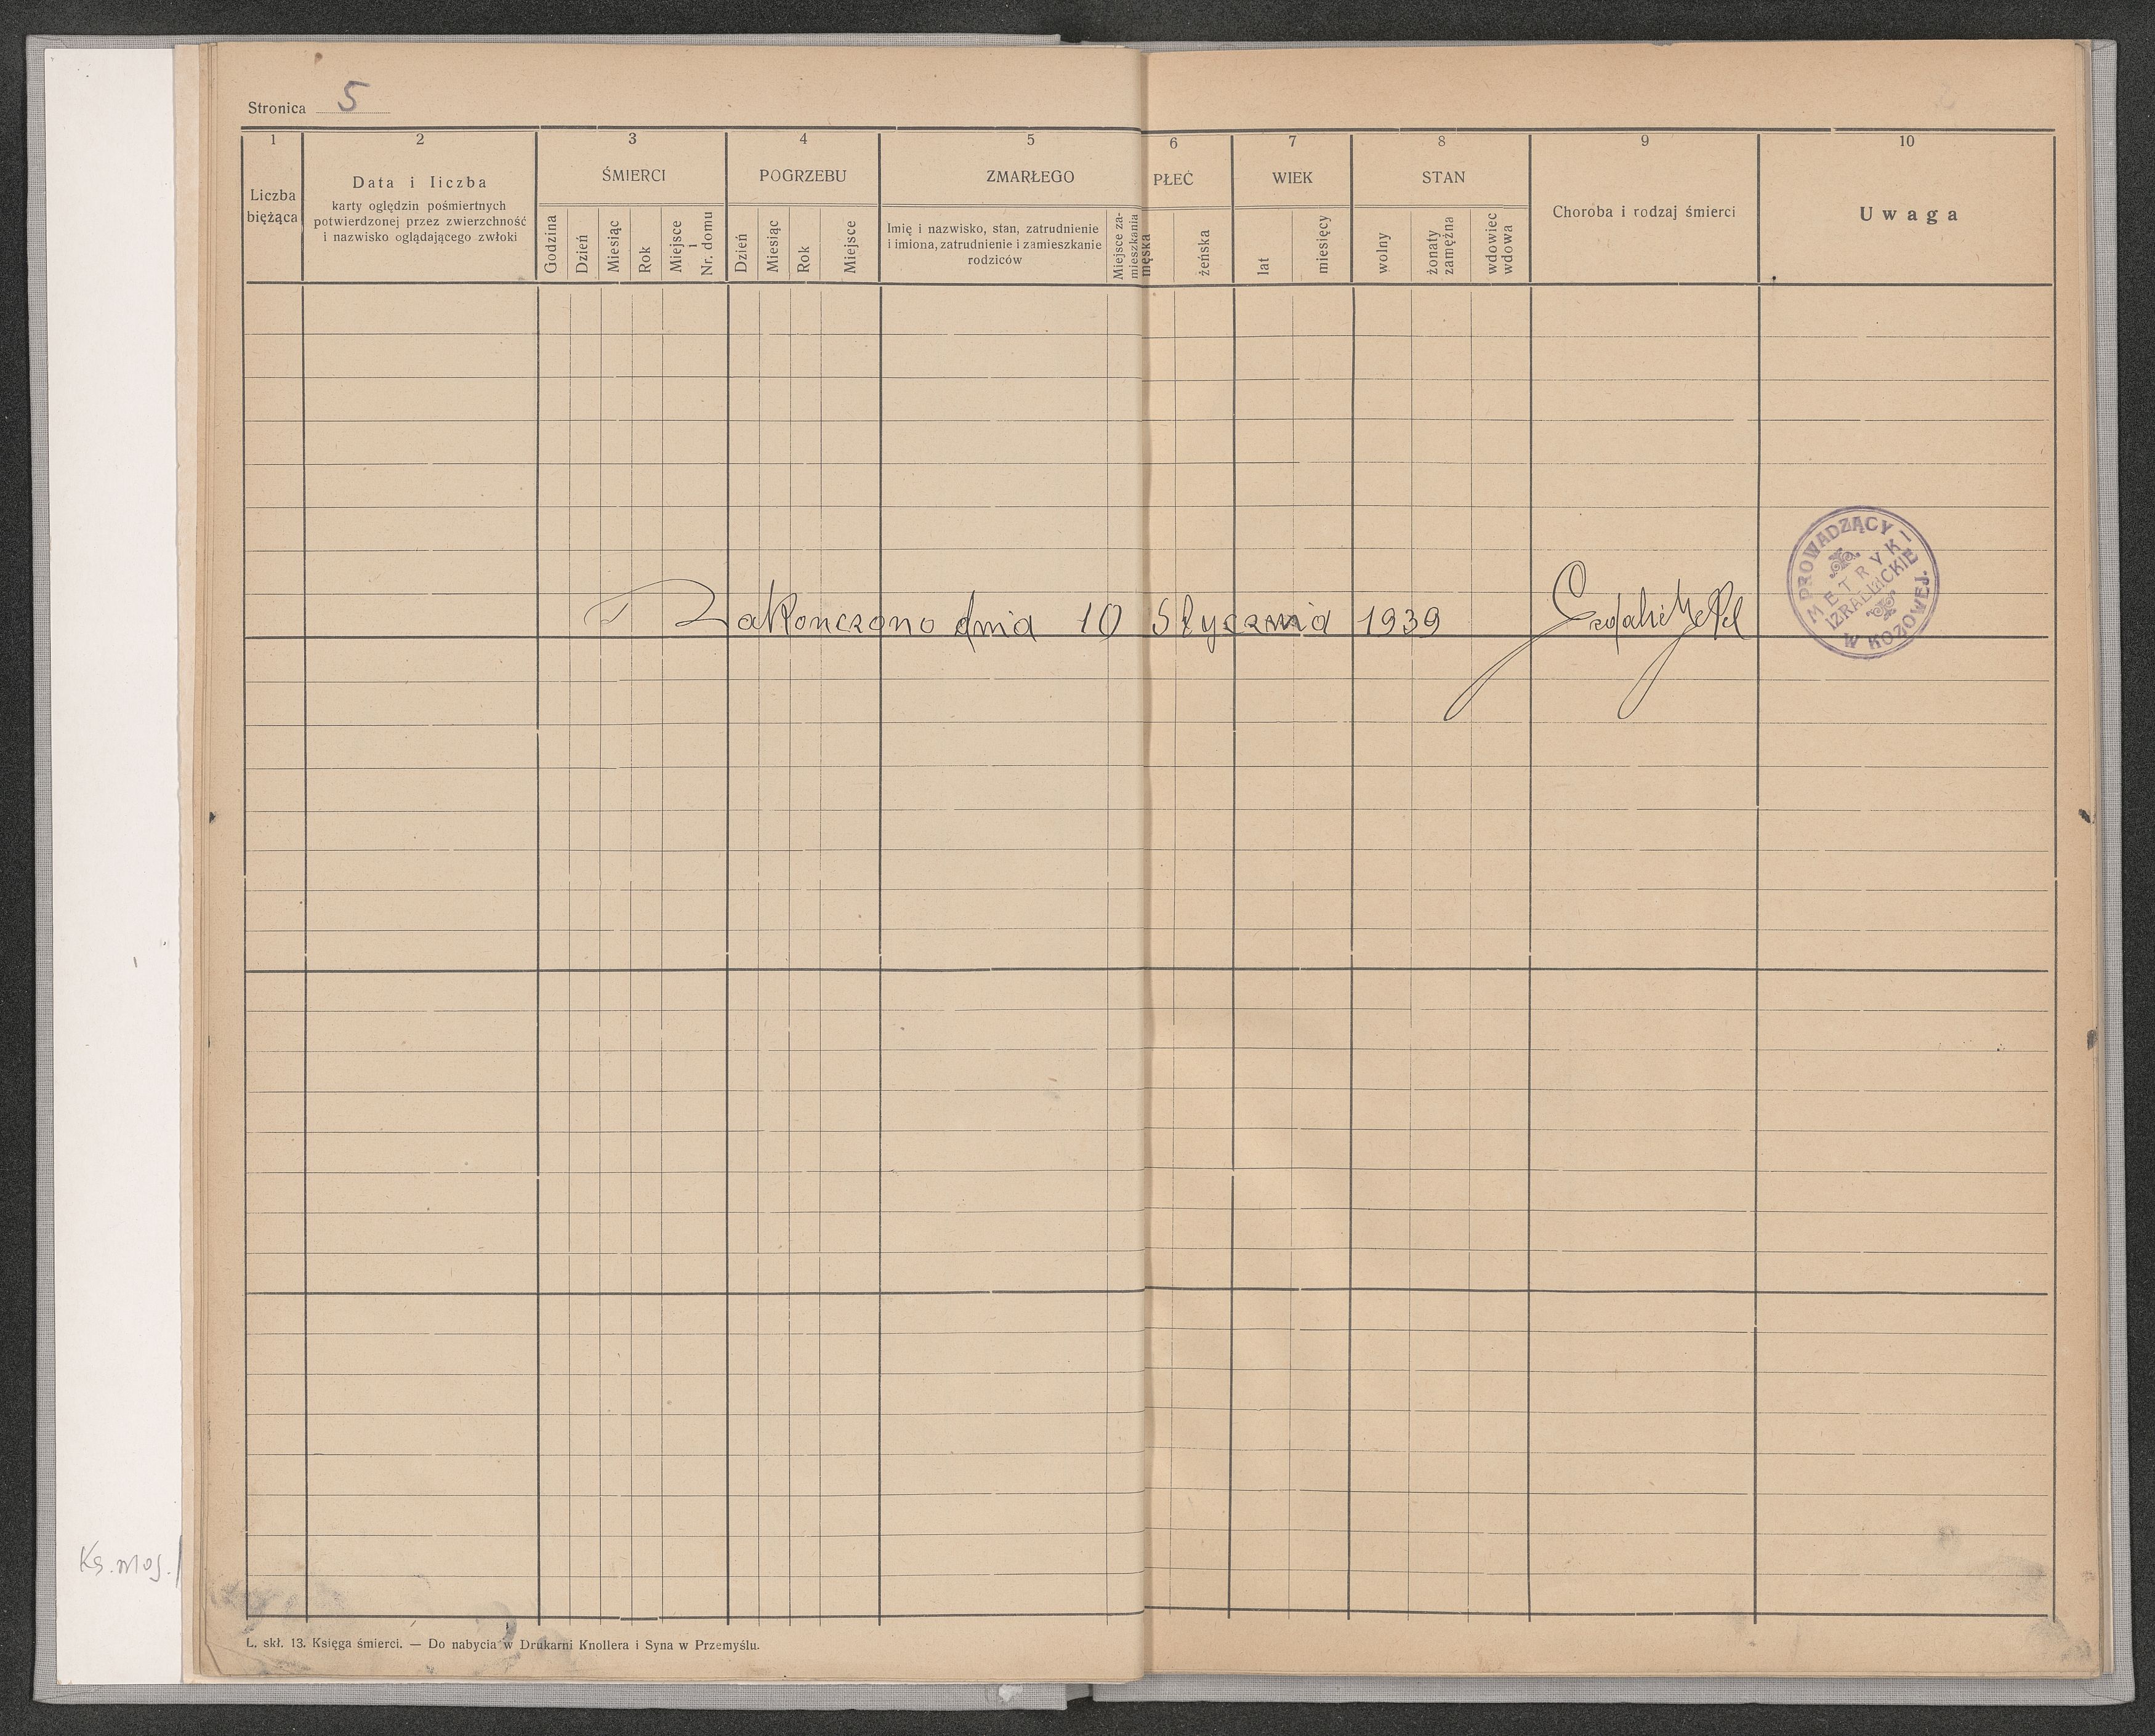 Stronica 5
1 2 3 4 5 6 7 8 9 10
Liczba bieżąca
Data i liczba
karty oględzin pośmiertnych
potwierdzonej przez zwierzchność
i nazwisko oglądającego zwłoki
ŚMIERCI
Godzina
Dzień
Miesiąc
Rok
Miejsce i Nr. domu
POGRZEBU
Dzień
Miesiąc
Rok
Miejsce
ZMARŁEGO
Imię i nazwisko, stan, zatrudnienie
i imiona, zatrudnienie i zamieszkanie
rodziców
Miejsce za-
mieszkania
PŁEĆ
męska
żeńska
WIEK
lat
miesięcy
STAN
wolny
żonaty
zamężna
wdowiec
wdowa
Choroba i rodzaj śmierci
Uwaga
Zakończono dnia 10 Stycznia 1939
PROWADZĄCY
METRYKI
IZRAELICKIE
W KOZOWEJ
Ks. moj.
L. skł. 13. Księga śmierci. — Do nabycia w Drukarni Knollera i Syna w Przemyślu.